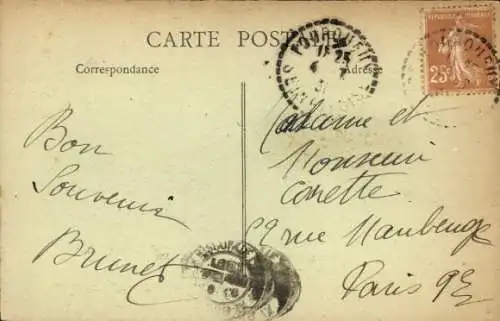 CARTE POSTALE
Correspondance
Adresse
25c
Bon
Souvenir
Brunet
Madame et
Monsieur
Carette
52 rue Maubeuge
Paris 9e